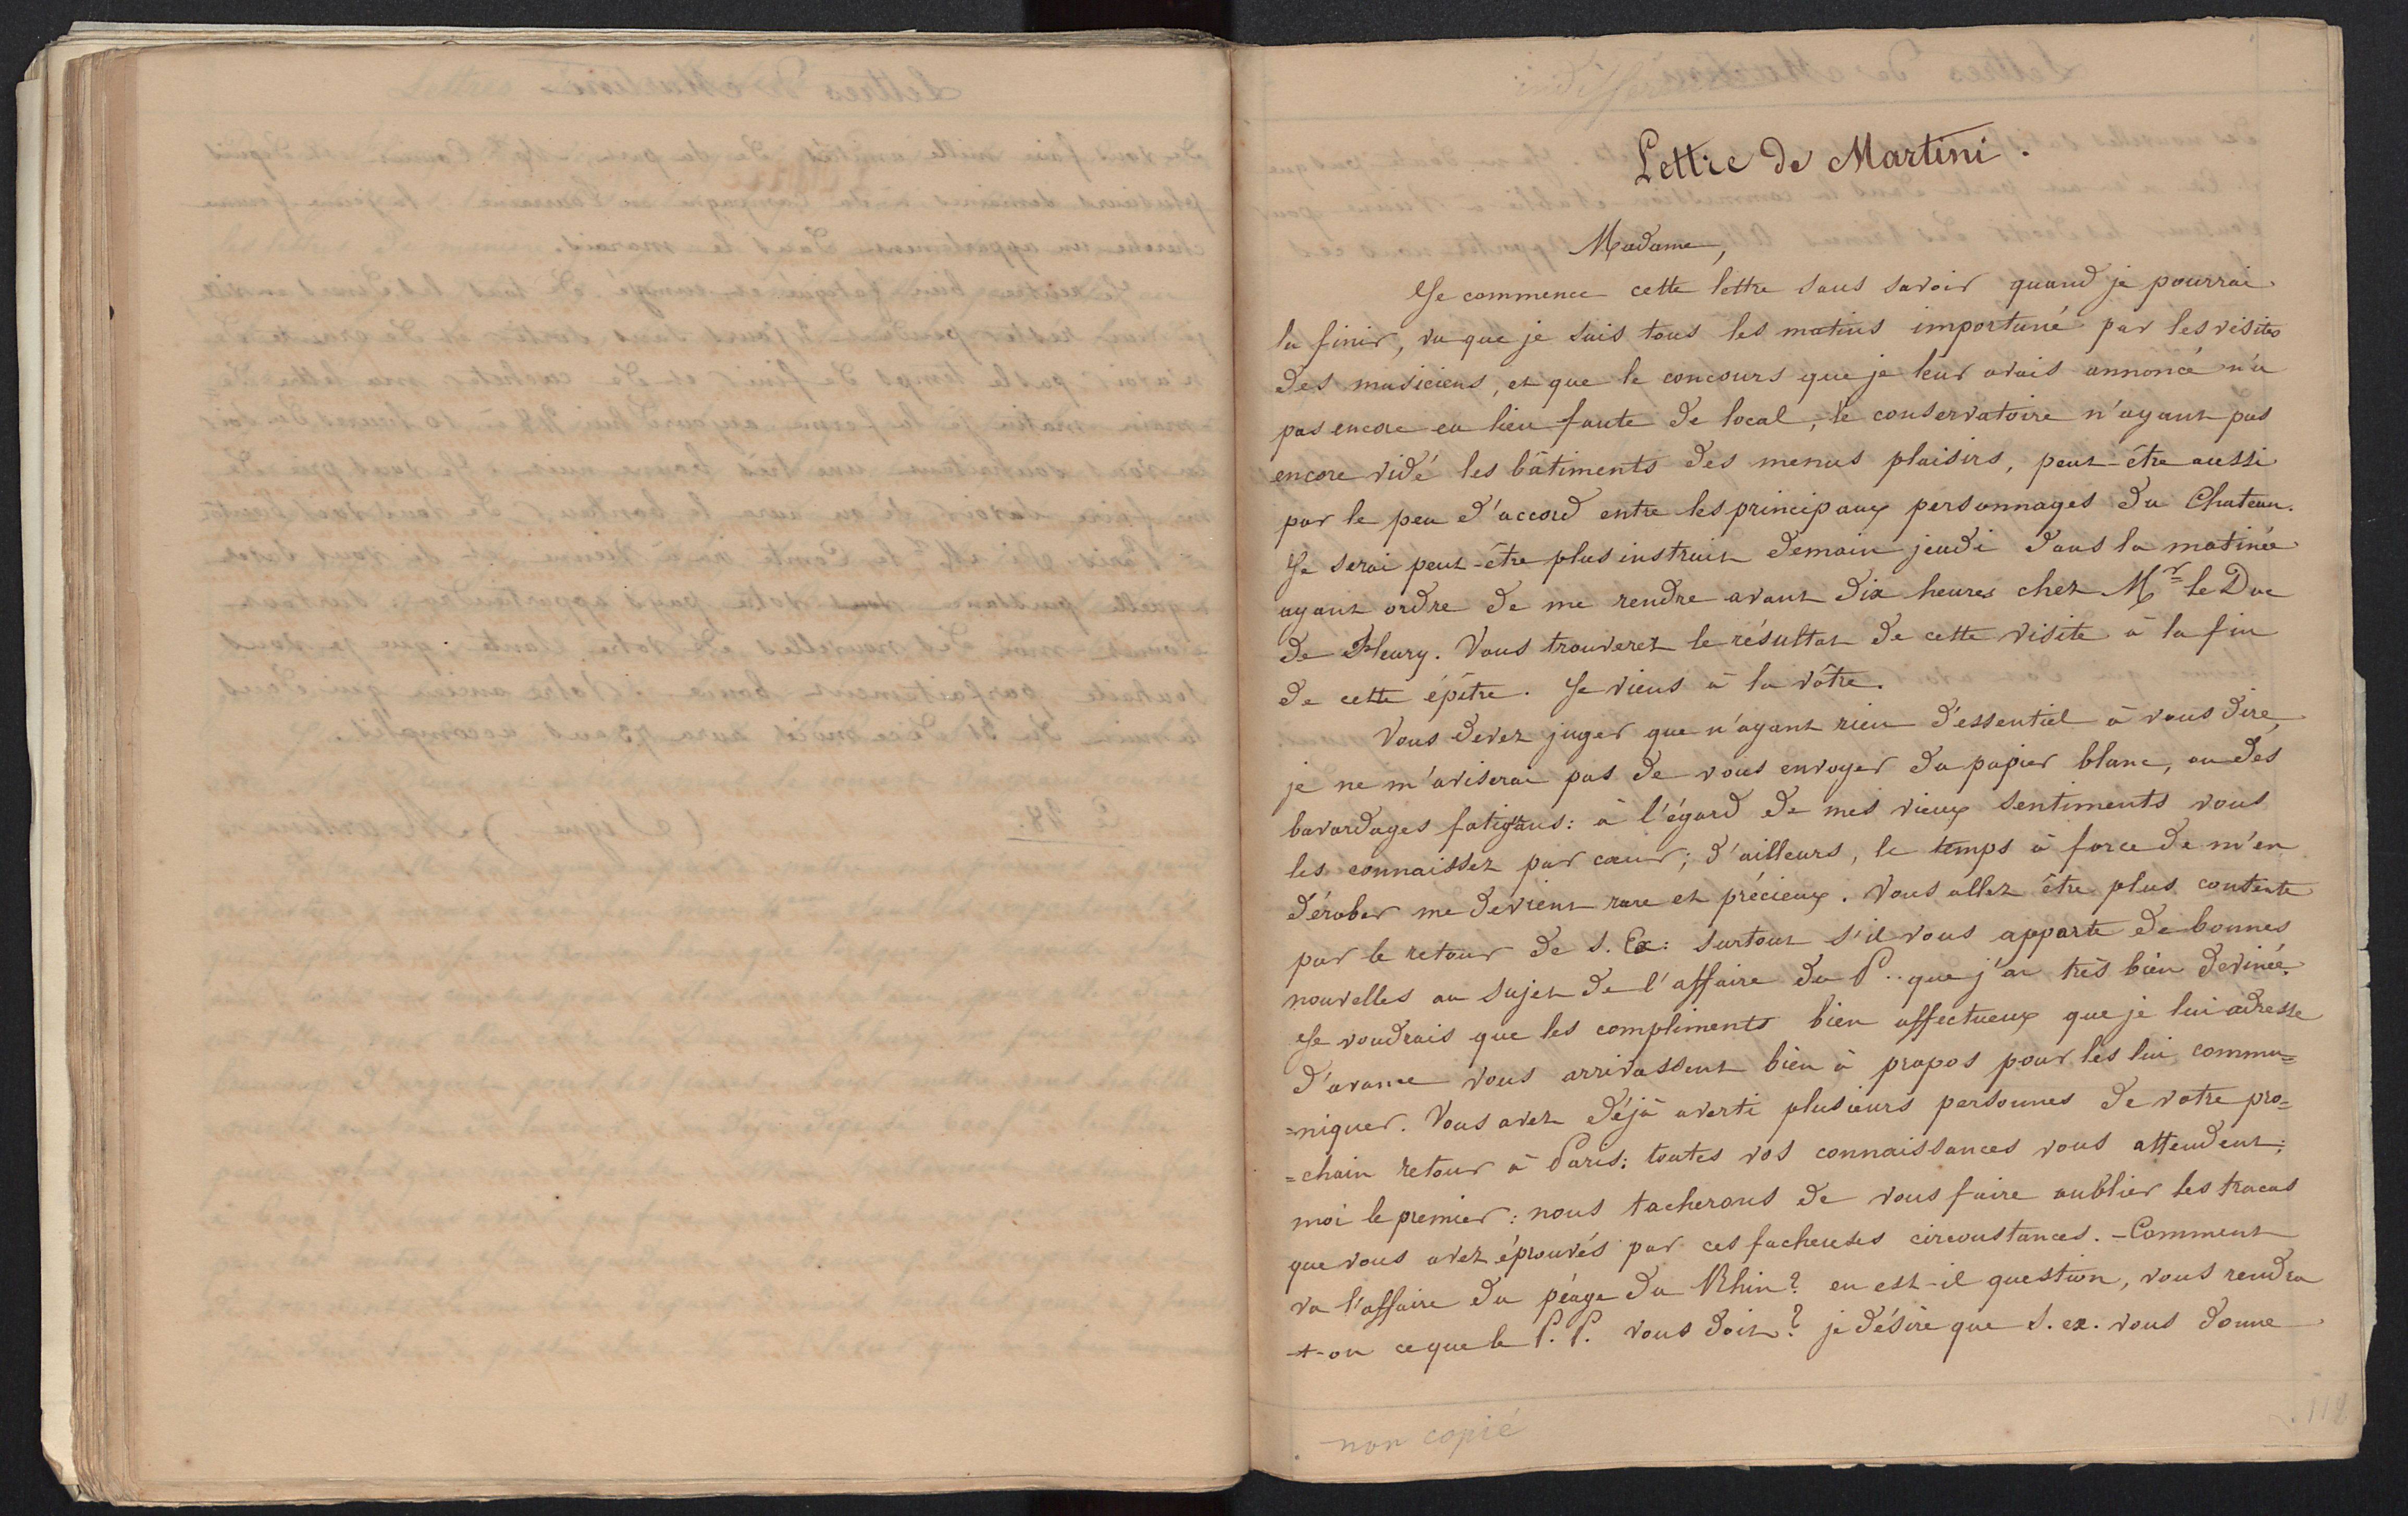 indifférent
Lettre de Martini.
Madame,
Je commence cette lettre sans savoir quand je pourrai
la finir, vu que je suis tous les matins importuné par les visites
des musiciens, et que le concours que je leur avais annoncé n'a
pas encore eu lieu faute de local, le conservatoire n'ayant pas
encore vidé les bâtiments des menus plaisirs, peut-être aussi
par le peu d'accord entre les principaux personnages du Chateau.
Je serai peut-être plus instruit demain jeudi dans la matinée
ayant ordre de me rendre avant dix heures chez Mr le Duc
de Fleury. Vous trouverez le résultat de cette visite à la fin
de cette épître. Je viens à la vôtre.
Vous devez juger que n'ayant rien d'essentiel à vous dire,
je ne m'aviserai pas de vous envoyer du papier blanc, ou des
bavardages fatigans: à l'égard de mes vieux sentiments vous
les connaissez par cœur; d'ailleurs, le temps à force de m'en
dérober me devient rare et précieux. Vous allez être plus contente
par le retour de S. Ex: surtout s'il vous apporte de bonnes
nouvelles au sujet de l'affaire du P.. que j'ai très bien devinée.
Je voudrais que les compliments bien affectueux que je lui adresse
d'avance vous arrivassent bien à propos pour les lui commu=
=niquer. Vous avez déjà averti plusieurs personnes de votre pro=
=chain retour à Paris: toutes vos connaissances vous attendent;
moi le premier: nous tacherons de vous faire oublier les tracas
que vous avez éprouvés par ces facheuses circonstances. - Comment
va l'affaire du péage du Rhin? en est-il question, vous rendra
-t-on ce que le P. P. vous doit? je désire que S. ex. vous donne
non copié
112